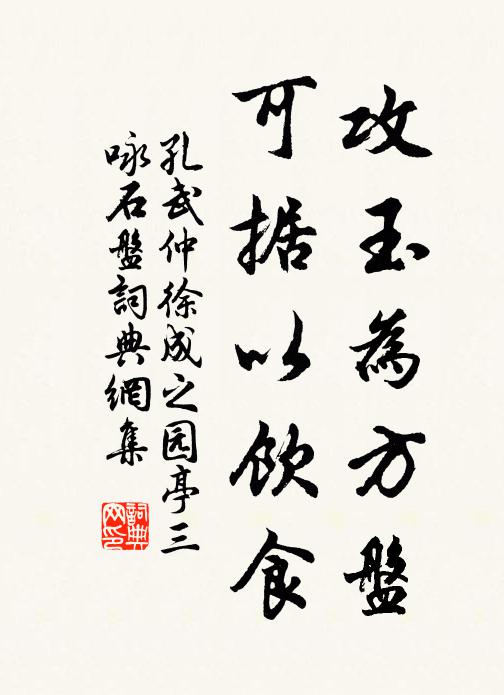 攻玉為方盤
可据以飲食
孔武仲徐成之园亭三
咏石盤詞典網集
詞典
网印